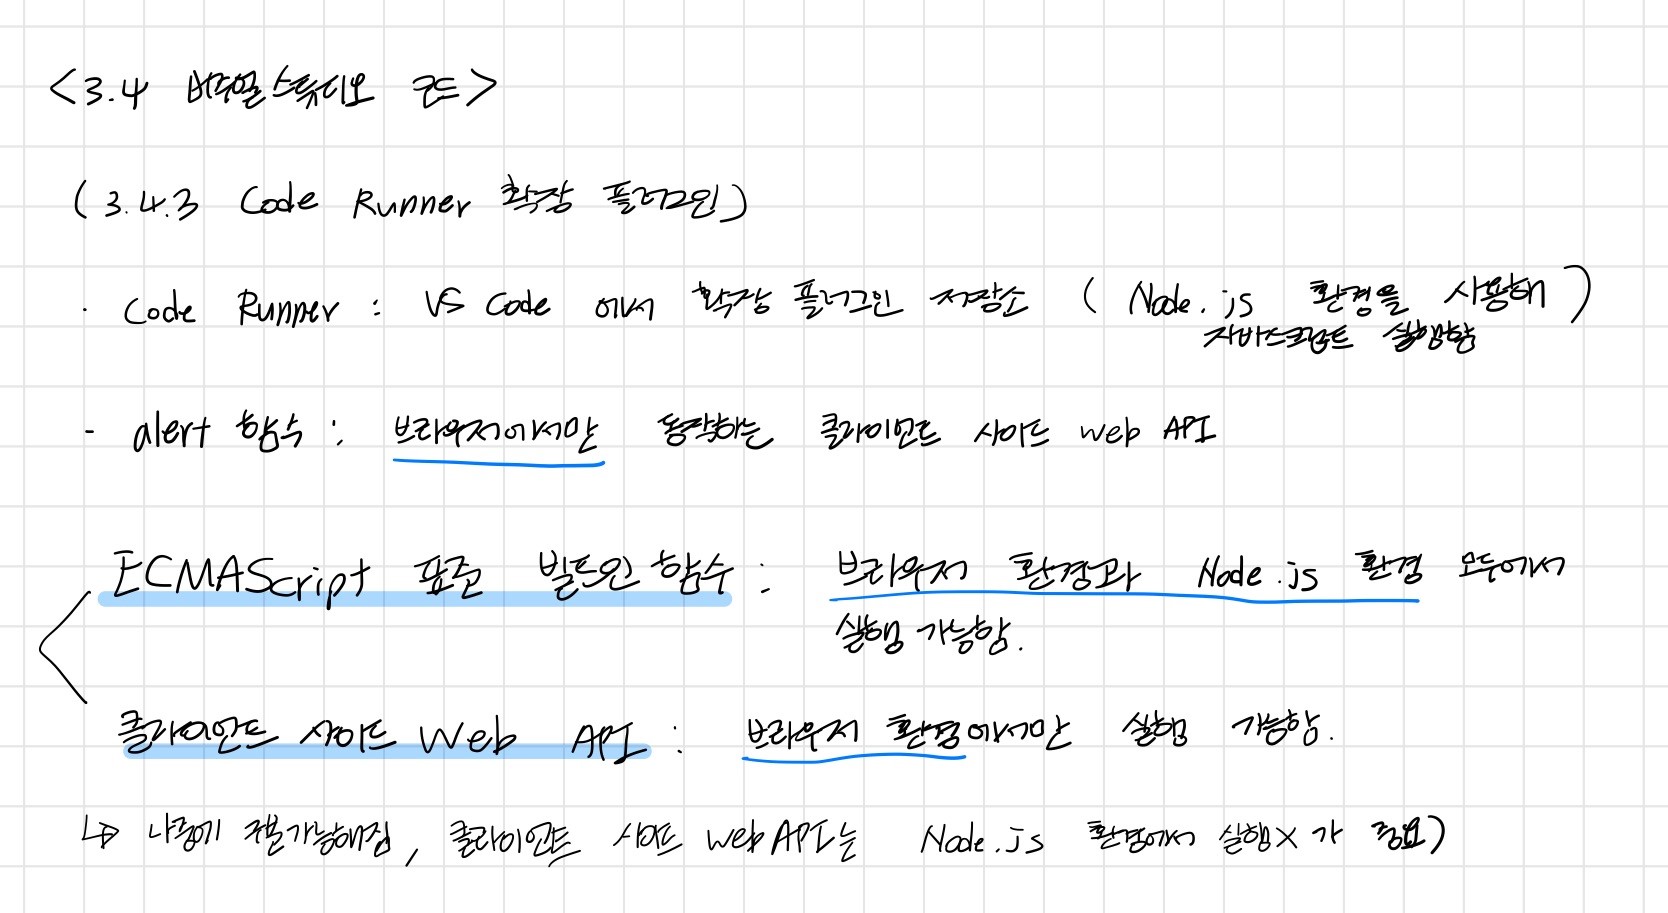 <3.4 비주얼 스튜디오 코드>
(3.4.3 Code Runner 확장 플러그인)
· Code Runner : VS Code 에서 확장 플러그인 저장소 (Node.js 환경을 사용해)
자바스크립트 실행함
- alert 함수 : 브라우저에서만 동작하는 클라이언트 사이드 web API
ECMAScript 표준 빌트인 함수 : 브라우저 환경과 Node.js 환경 모두에서
실행 가능함.
클라이언트 사이드 Web API : 브라우저 환경에서만 실행 가능함.
↳ 나중에 구분가능해짐, 클라이언트 사이드 web API는 Node.js 환경에서 실행X 가 중요)